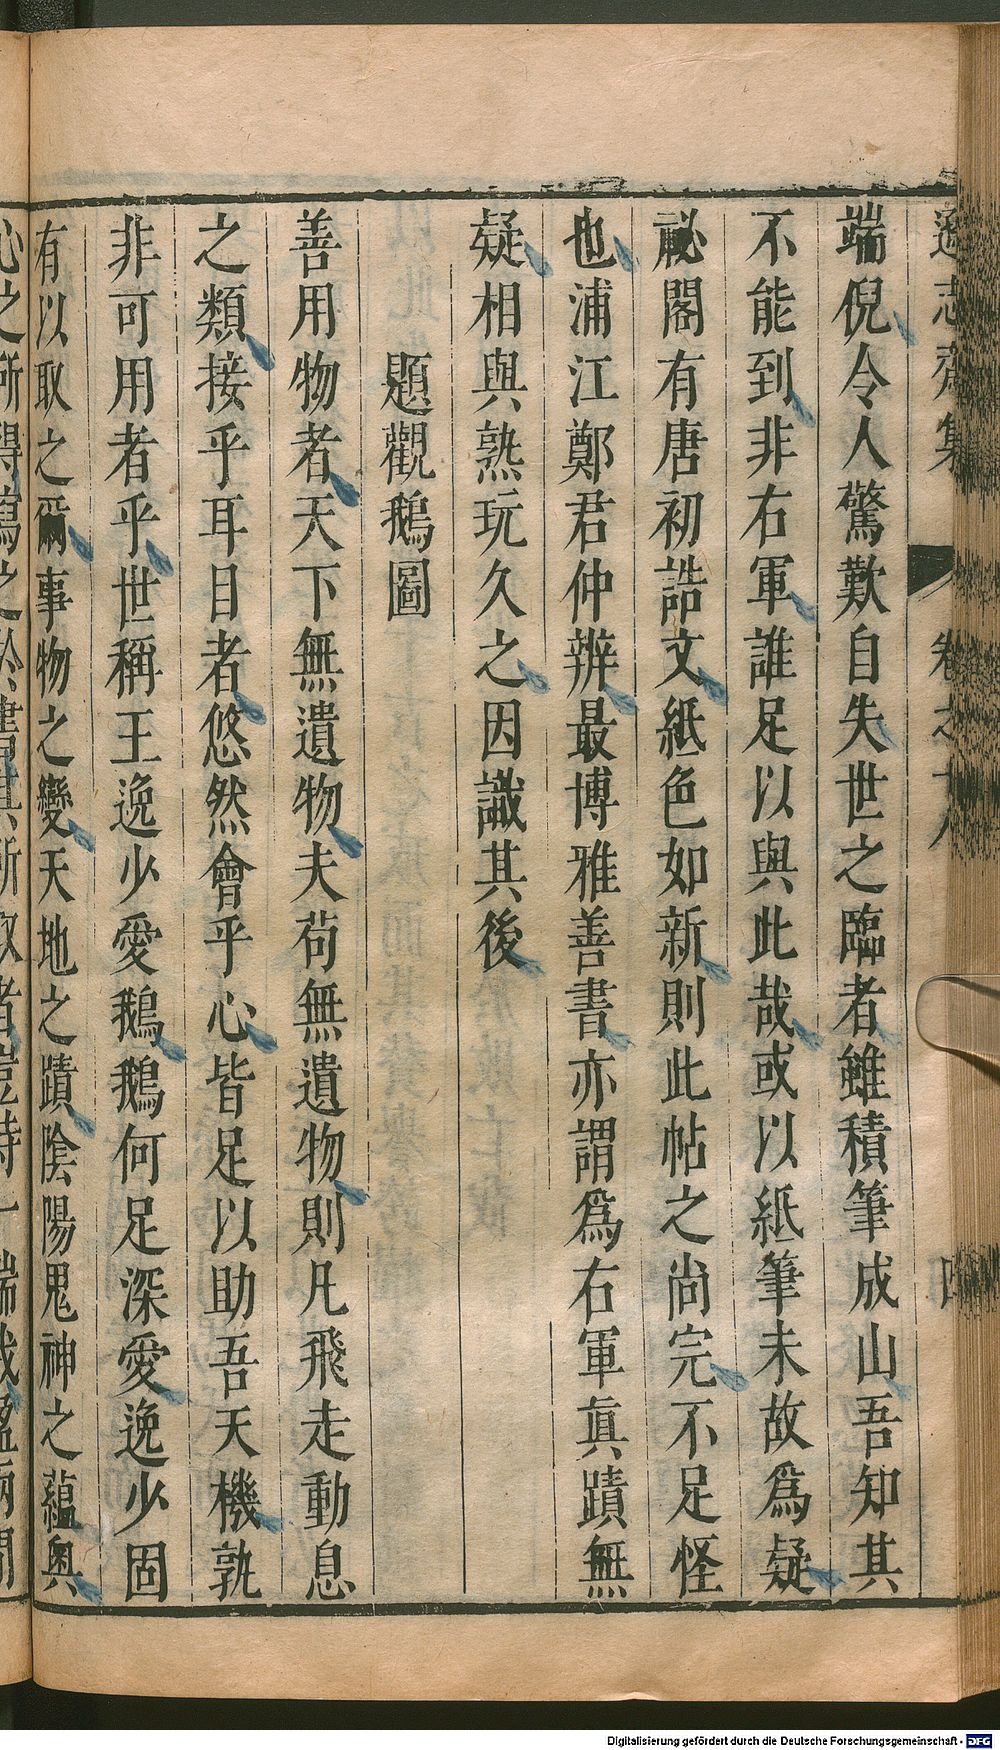 遜志齋集 卷之十八 四
端倪令人驚歎自失世之臨者雖積筆成山吾知其
不能到非右軍誰足以與此哉或以紙筆未故爲疑
祕閣有唐初誥文紙色如新則此帖之尚完不足怪
也浦江鄭君仲辨最博雅善書亦謂爲右軍眞蹟無
疑相與熟玩久之因識其後
題觀鵝圖
善用物者天下無遺物夫苟無遺物則凡飛走動息
之類接乎耳目者悠然會乎心皆足以助吾天機孰
非可用者乎世稱王逸少愛鵝鵝何足深愛逸少固
有以取之爾事物之變天地之蹟陰陽鬼神之蘊奥
心之所得寫之於書其所取者豈特一端哉
Digitalisierung gefördert durch die Deutsche Forschungsgemeinschaft - DFG